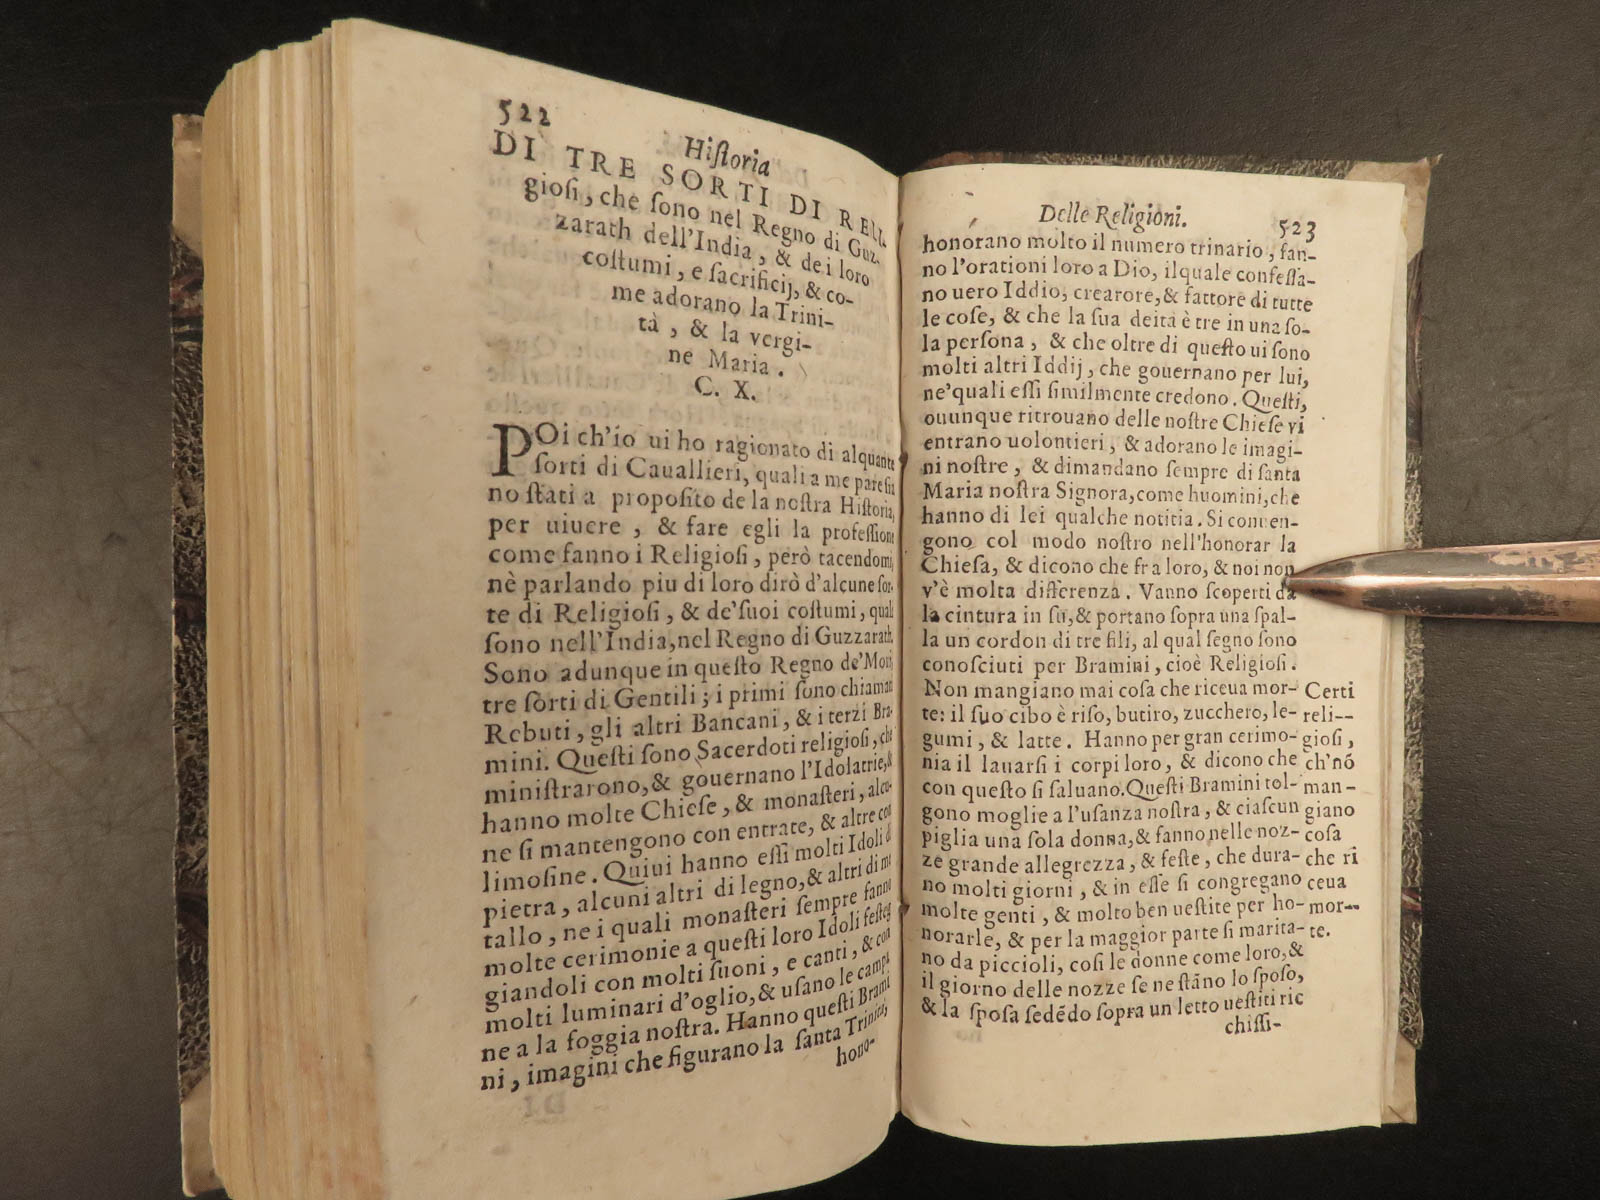 522
Hiſtoria
DI TRE SORTI DI RELI
gioſi, che ſono nel Regno di Guz-
zarath dell'India, & dei loro
coſtumi, e ſacrificij, & co-
me adorano la Trini-
tà, & la vergi-
ne Maria.
C. X.
POi ch'io ui ho ragionato di alquante
ſorti di Cauallieri, quali a me pare ſia
no ſtati a propoſito de la noſtra Hiſtoria,
per uiuere, & fare egli la profeſſione
come fanno i Religioſi, però tacendomi,
nè parlando piu di loro dirò d'alcune ſor-
te di Religioſi, & de'ſuoi coſtumi, quali
ſono nell'India, nel Regno di Guzzarath.
Sono adunque in queſto Regno de'Mori,
tre ſorti di Gentili; i primi ſono chiamati
Rebuti, gli altri Bancani, & i terzi Bra-
mini. Queſti ſono Sacerdoti religioſi, che
miniſtrarono, & gouernano l'Idolatrie, &
hanno molte Chieſe, & monaſteri, alcu-
ne ſi mantengono con entrate, & altre con
limoſine. Quiui hanno eſſi molti Idoli di
pietra, alcuni altri di legno, & altri di me
tallo, ne i quali monaſteri ſempre fanno
molte cerimonie a queſti loro Idoli feſteg
giandoli con molti ſuoni, e canti, & con
molti luminari d'oglio, & uſano le campa
ne a la foggia noſtra. Hanno queſti Brami
ni, imagini che figurano la ſanta Trinità,
hono-
Delle Religioni.
523
honorano molto il numero trinario, fan-
no l'orationi loro a Dio, ilquale confeſſa-
no uero Iddio, crearore, & fattore di tutte
le coſe, & che la ſua deità è tre in una ſo-
la perſona, & che oltre di queſto ui ſono
molti altri Iddij, che gouernano per lui,
ne'quali eſſi ſimilmente credono. Queſti,
ouunque ritrouano delle noſtre Chieſe vi
entrano uolontieri, & adorano le imagi-
ni noſtre, & dimandano ſempre di ſanta
Maria noſtra Signora, come huomini, che
hanno di lei qualche notitia. Si conuen-
gono col modo noſtro nell'honorar la
Chieſa, & dicono che fra loro, & noi non
v'è molta differenza. Vanno ſcoperti da
la cintura in ſu, & portano ſopra una ſpal-
la un cordon di tre fili, al qual ſegno ſono
conoſciuti per Bramini, cioè Religioſi.
Non mangiano mai coſa che riceua mor-
te: il ſuo cibo è riſo, butiro, zucchero, le-
gumi, & latte. Hanno per gran cerimo-
nia il lauarſi i corpi loro, & dicono che
con queſto ſi ſaluano. Queſti Bramini tol-
gono moglie a l'uſanza noſtra, & ciaſcun
piglia una ſola donna, & fanno nelle noz-
ze grande allegrezza, & feſte, che dura-
no molti giorni, & in eſſe ſi congregano
molte genti, & molto ben ueſtite per ho-
norarle, & per la maggior parte ſi marita-
no da piccioli, coſi le donne come loro, &
il giorno delle nozze ſe ne ſtāno lo ſpoſo,
& la ſpoſa ſedēdo ſopra un letto ueſtiti ric
chiſſi-
Certi
reli--
gioſi,
ch'nō
man-
giano
coſa
che ri
ceua
mor--
te.